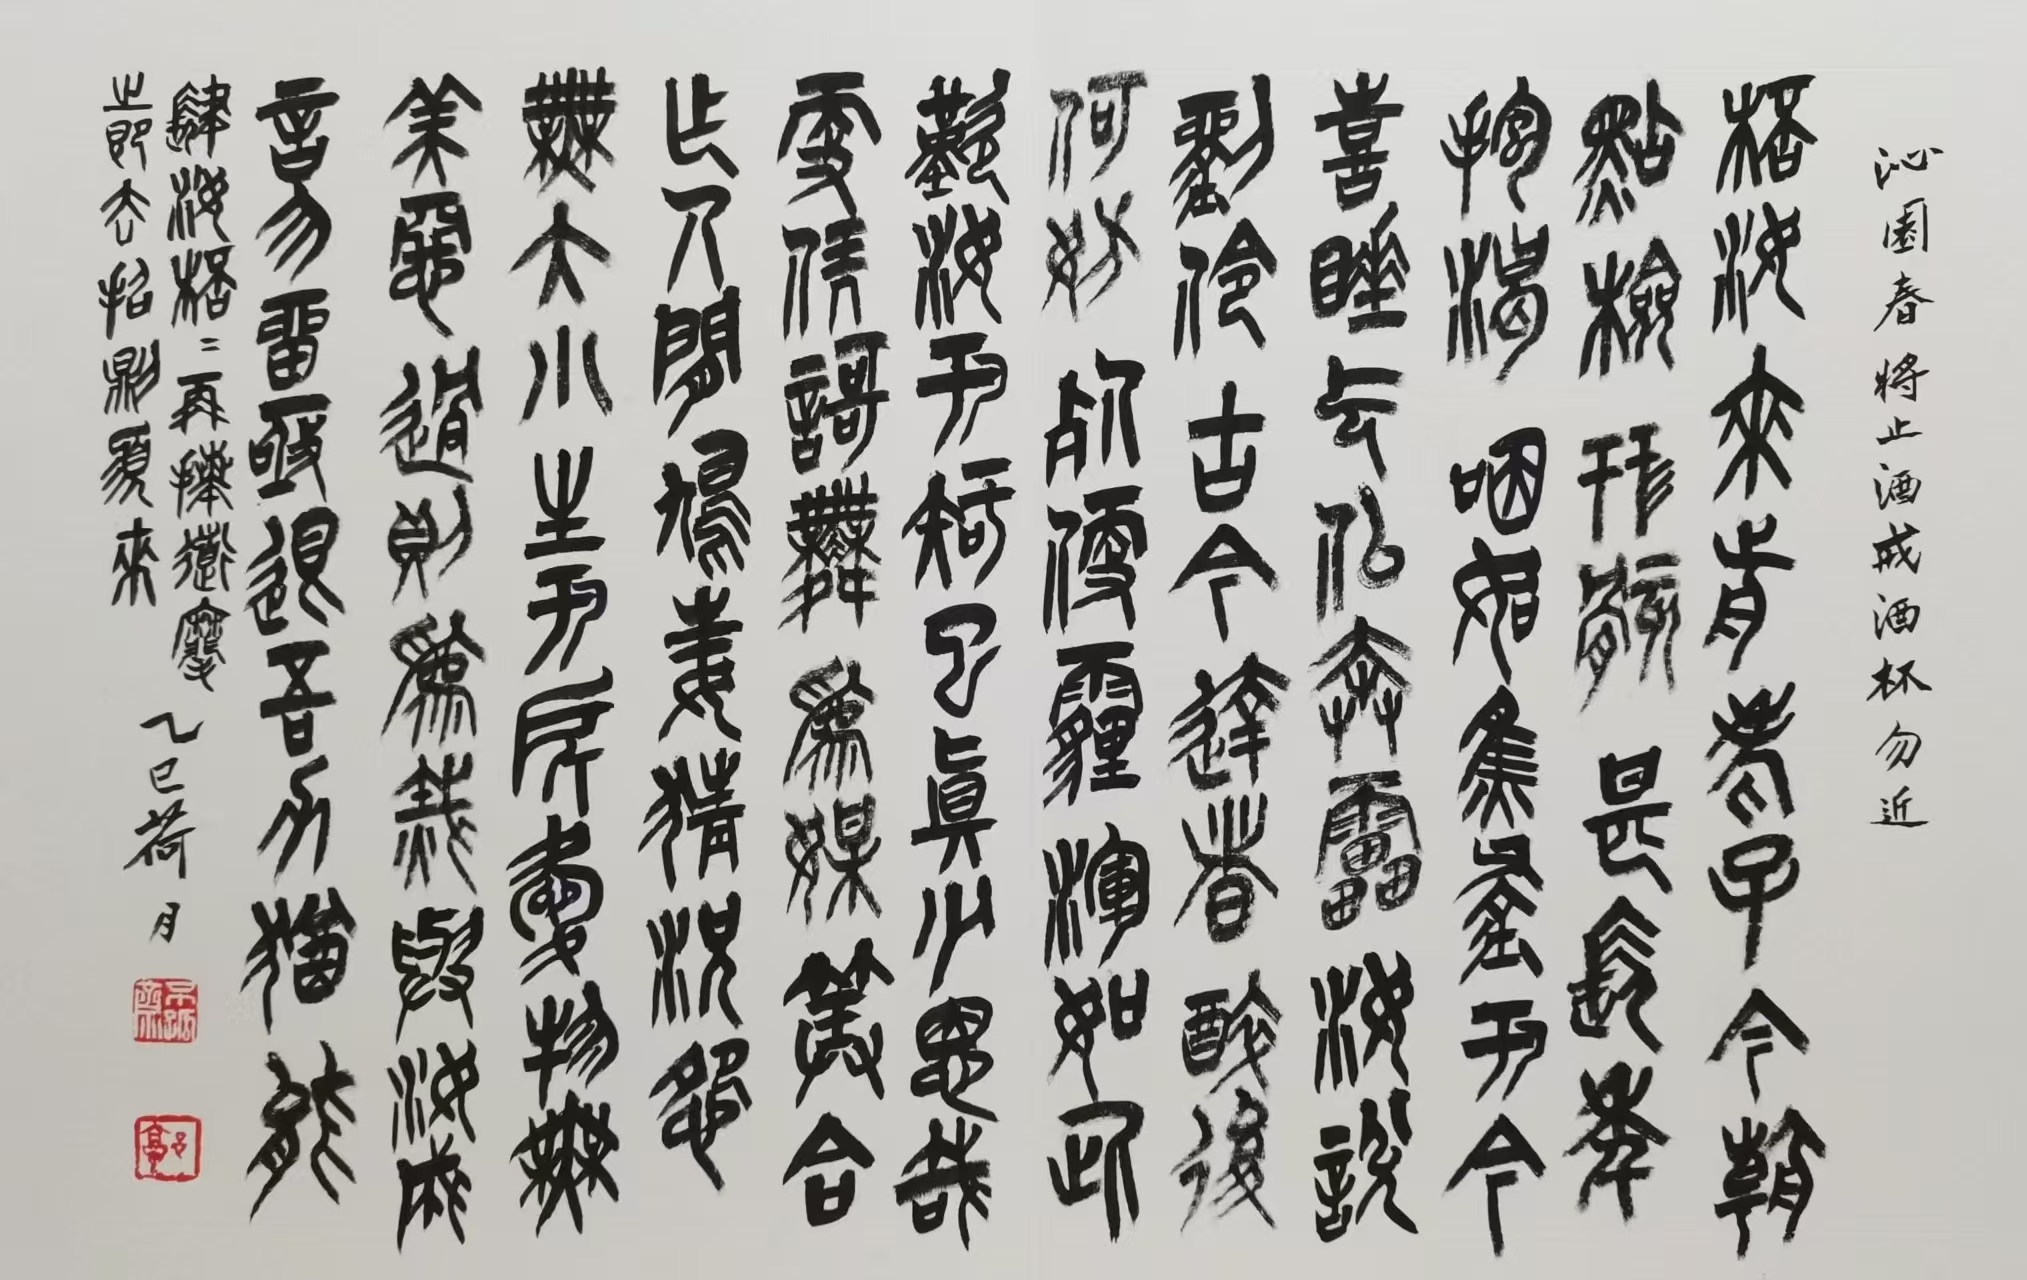 沁園春將止酒戒酒杯勿近
桮汝來歬老子今朝
點檢形骸甚長年
抱渴咽如焦釜于今
喜睡气似奔靁汝說
劉伶古今達者醉後
何妨死便薶渾如此
歎汝于知己真少恩哉
更凭歌舞為媒算合
作人間鴆毒猜況怨
無大小生于所愛物無
美惡過則為烖與汝成
言勿留亟退吾力猶能
肆汝桮二再拜道麾
之即去招則須來
乙巳荷月